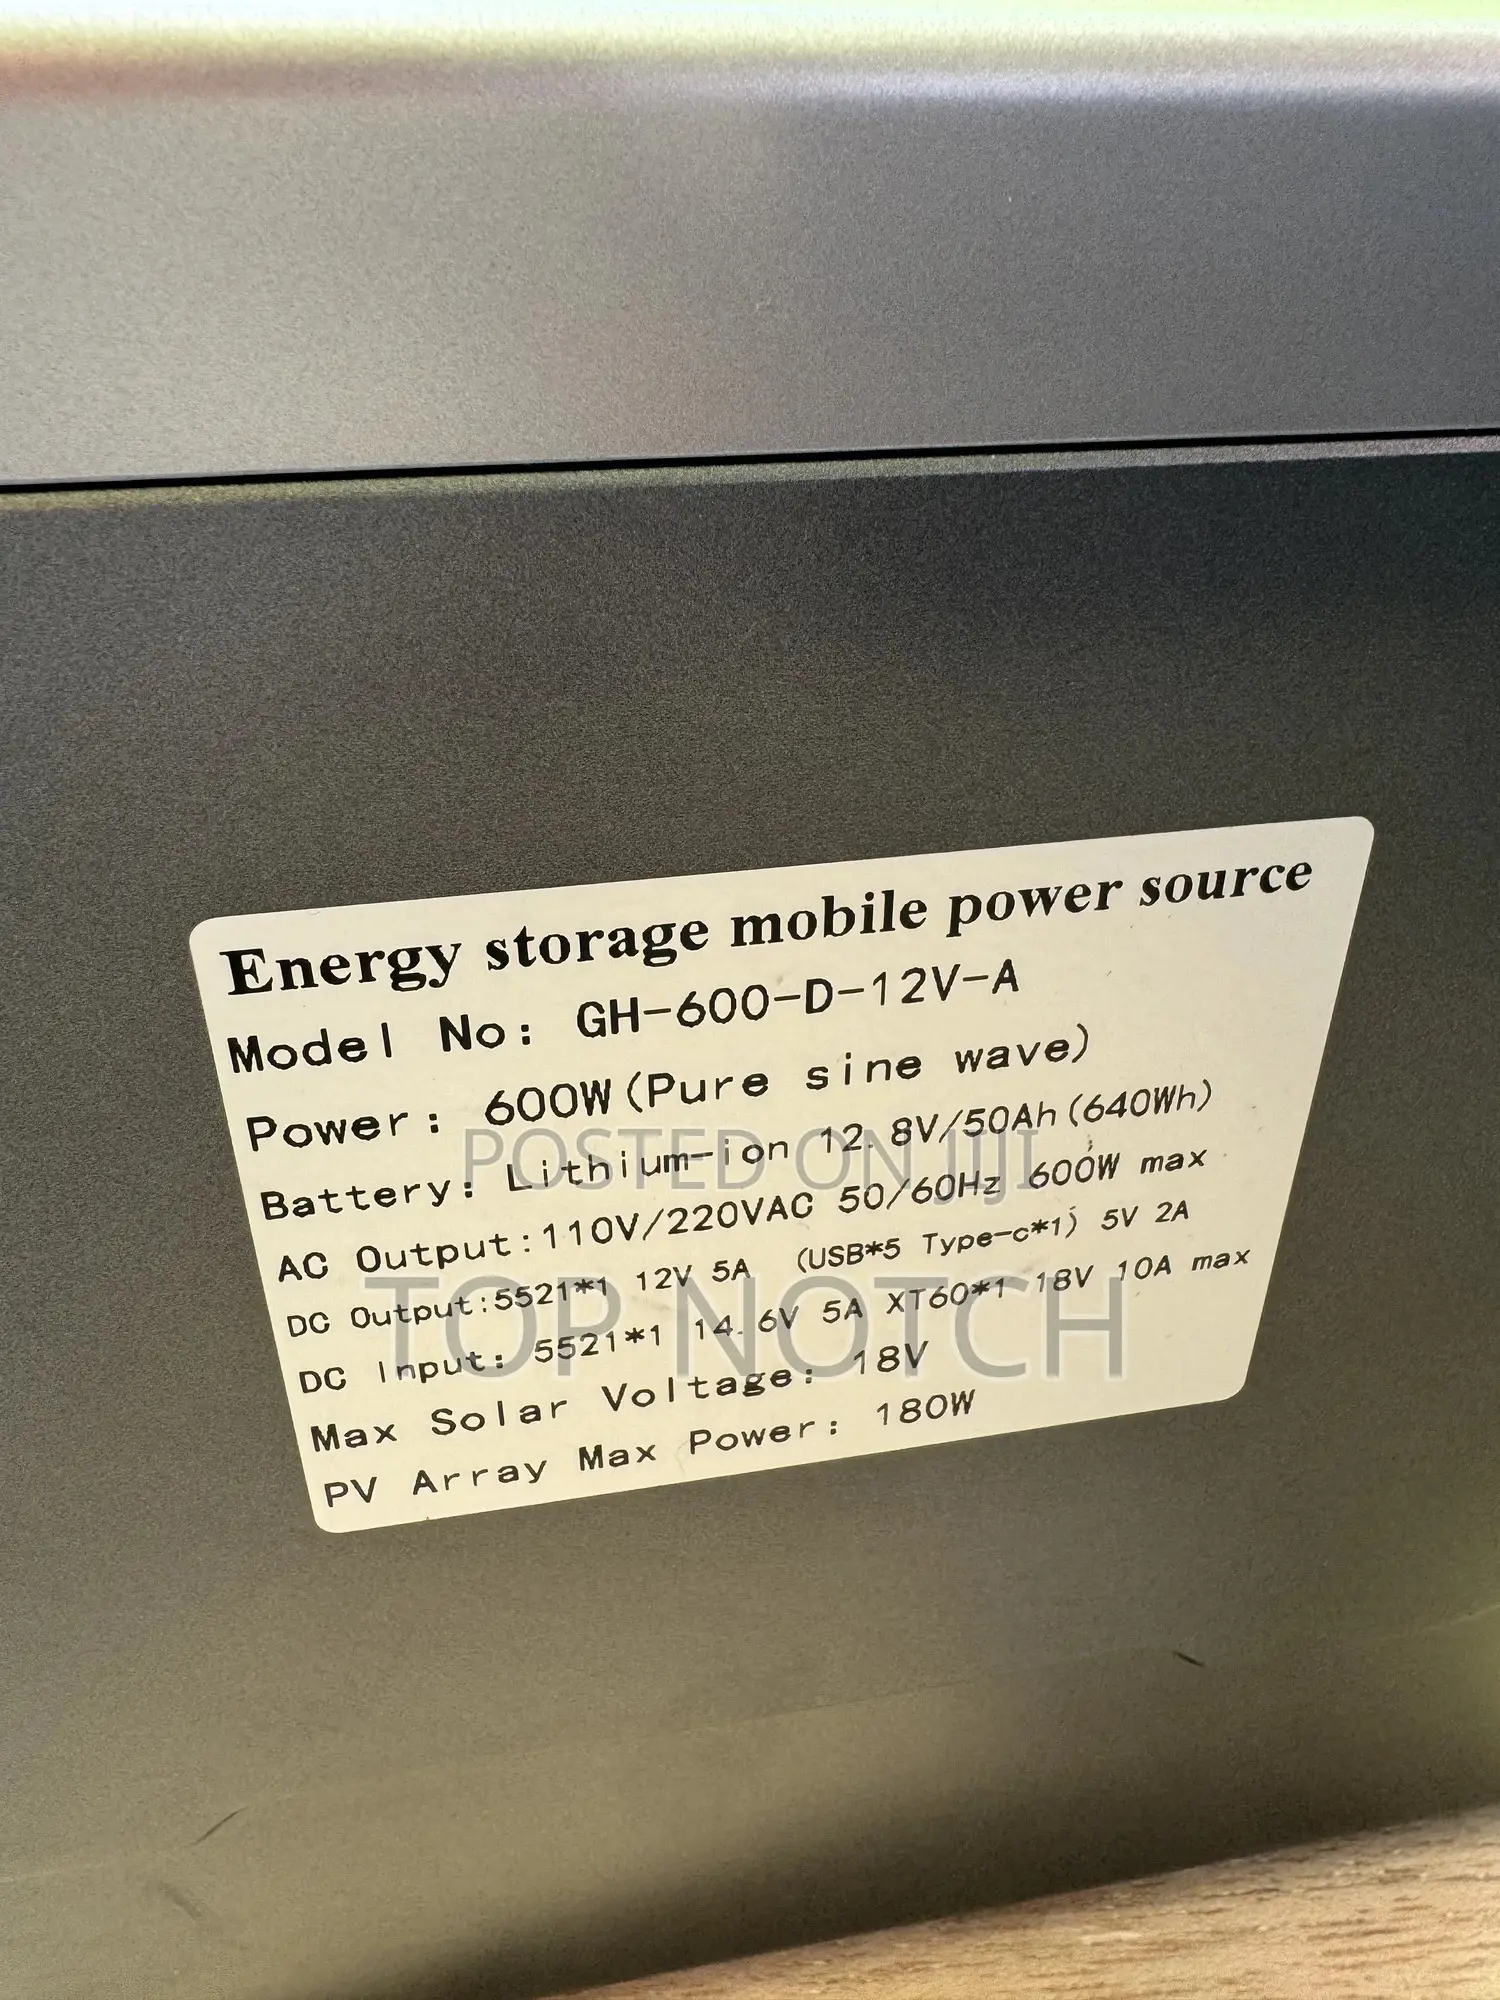 Energy storage mobile power source
Model No: GH-600-D-12V-A
Power: 600W(Pure sine wave)
Battery: Lithium-ion 12.8V/50Ah(640Wh)
AC Output:110V/220VAC 50/60Hz 600W max
DC Output:5521*1 12V 5A (USB*5 Type-c*1) 5V 2A
DC Input: 5521*1 14.6V 5A XT60*1 18V 10A max
Max Solar Voltage: 18V
PV Array Max Power: 180W
POSTED ON JIJI
TOP NOTCH